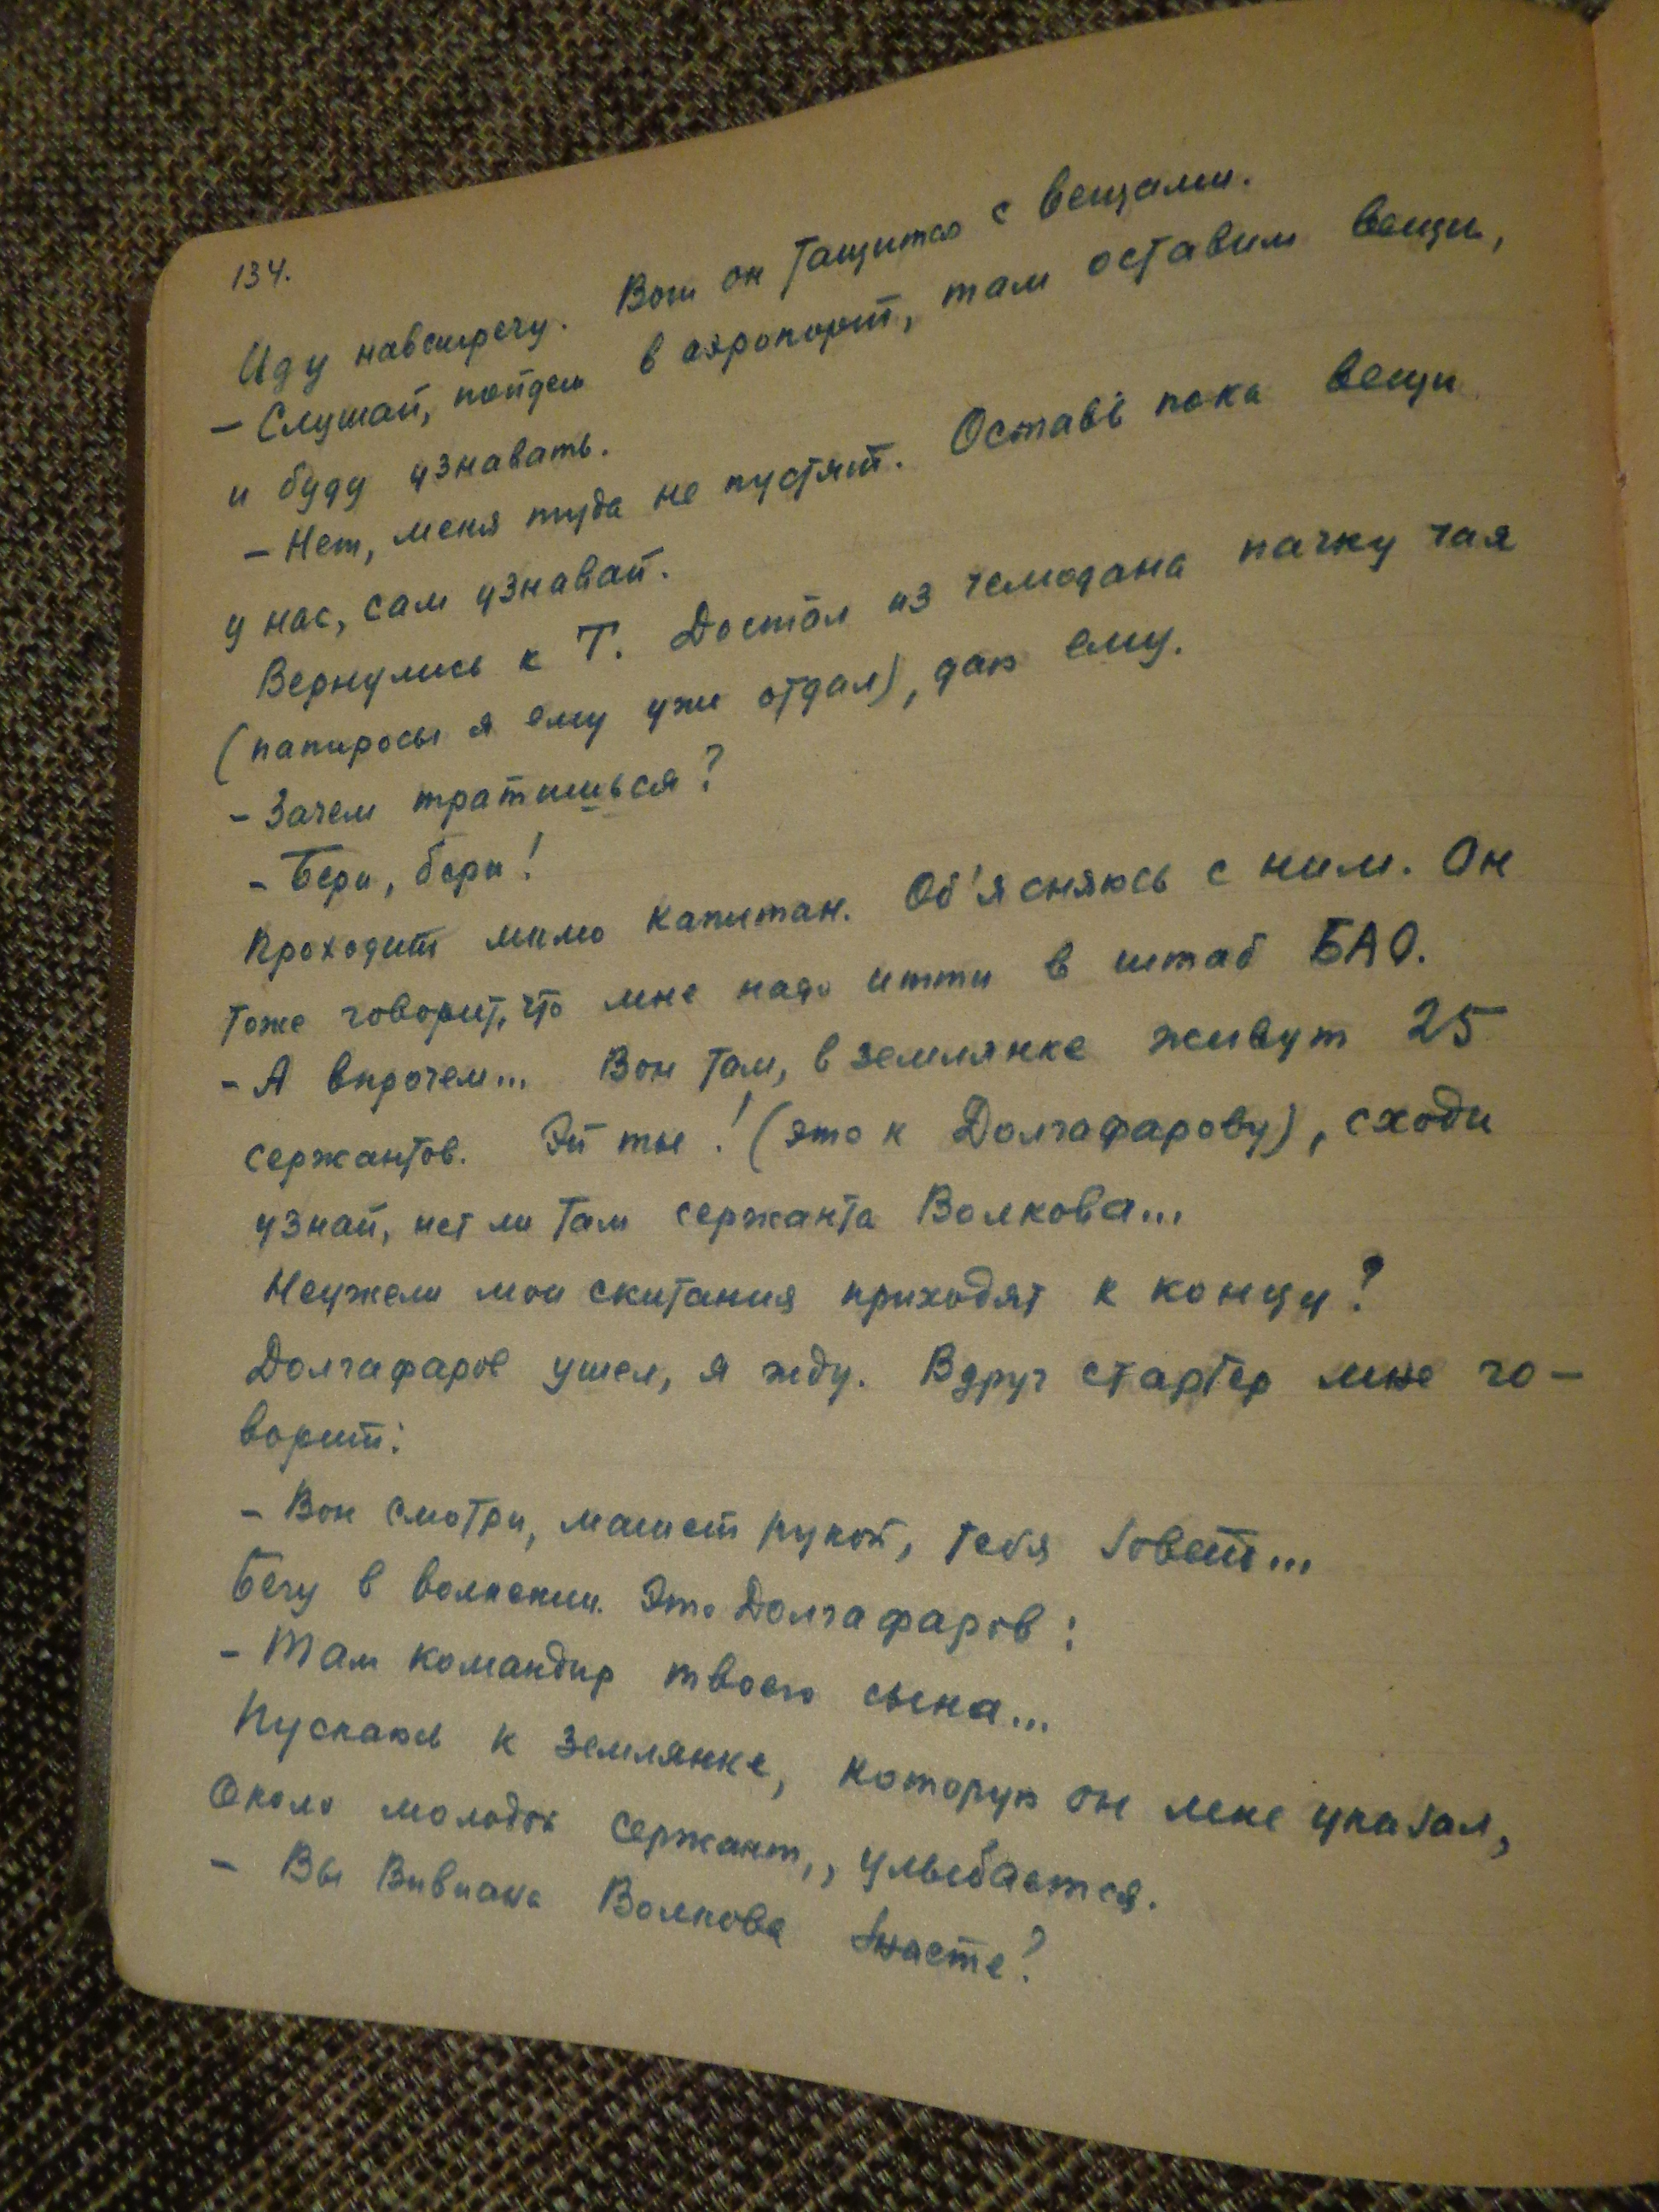 134.
Иду навстречу. Вот он тащится с вещами.
— Слушай, пойдем в аэропорт, там оставим вещи,
и буду узнавать.
— Нет, меня туда не пустят. Оставь пока вещи
у нас, сам узнавай.
Вернулись к Т. Достал из чемодана пачку чая
(папиросы я ему уже отдал), даю ему.
- Зачем тратишься?
- Бери, бери!
Проходит мимо капитан. Об'ясняюсь с ним. Он
тоже говорит, что мне надо итти в штаб БАО.
- А впрочем... Вон там, в землянке живут 25
сержантов. Эй ты! (это к Долгафарову), сходи
узнай, нет ли там сержанта Волкова...
Неужели мои скитания приходят к концу?
Долгафаров ушел, я жду. Вдруг стартер мне го-
ворит:
- Вон смотри, машет рукой, тебя зовет...
Бегу в волнении. Это Долгафаров:
- Там командир твоего сына...
Пускаюсь к землянке, которую он мне указал,
Около молодой сержант,, улыбается.
- Вы Вивиана Волкова знаете?